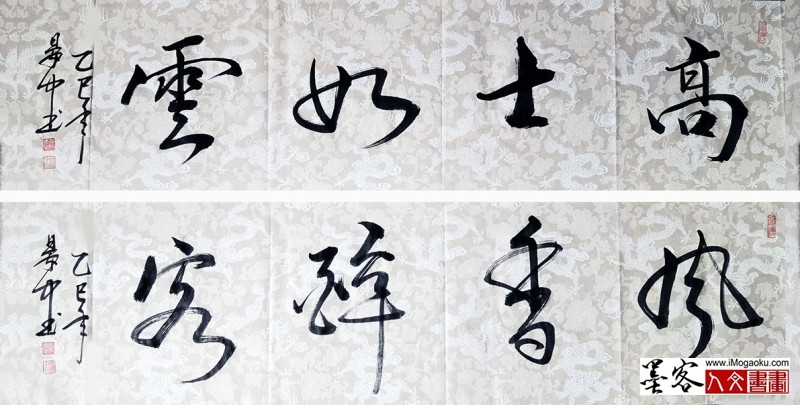 高士如雲
乙巳年
中书
风香醉客
乙巳年
中书
墨客
www.iMogaoku.com
人文書畫